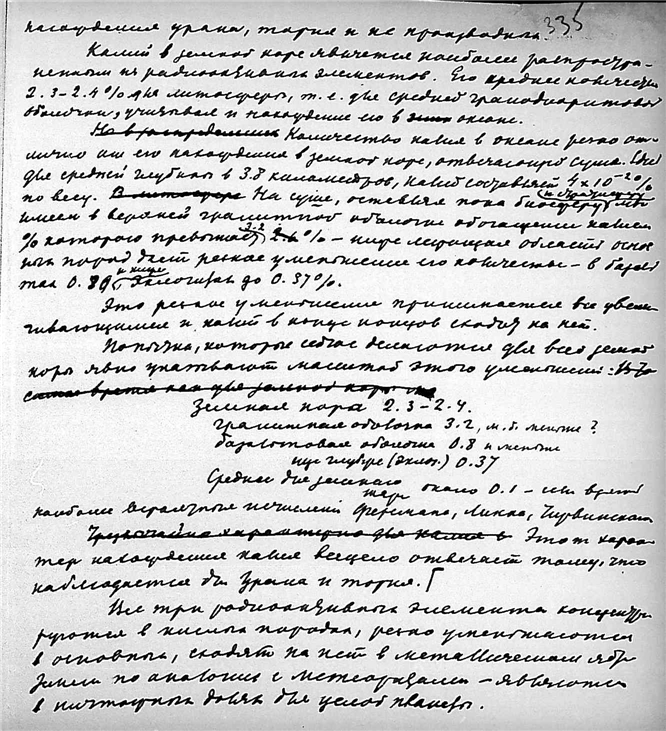 нахождения урана, тория и их производных. 335
Калий в земной коре является наиболее распростра-
ненным из радиоактивных элементов. Его среднее количество
2.3-2.4% для литосферы, т.е. для средней гранодиоритовой
оболочки, учитывая и нахождение его в океане.
Но в распределении Количество калия в океане резко от-
лично от его нахождения в земной коре, отвечающей суше. Для
средней глубины в 3.8 километров, калий составляет 4×10⁻²%
по весу. В литосфере На суше, оставляя пока биосферу мы
имеем в верхней гранитной оболочке обогащение калием
% которого превышает 3.2% – ниже лежащая область основ-
ных пород дает резкое уменьшение его количества – в базаль-
тах 0.8% и ниже, эклогитах до 0.37%.
Это резкое уменьшение принимается все увели-
чивающимся и калий в конце концов сходит на нет.
Попытки, которые сейчас делаются для всей земной
коры явно указывают масштаб этого уменьшения: В то
самое время как для земной коры
Земная кора 2.3-2.4.
гранитная оболочка 3.2, м.б. меньше?
базальтовая оболочка 0.8 и меньше
еще глубже (эклог.) 0.37
Среднее для земного
шара около 0.1 – если взять
наиболее вероятные исчисления Ферсмана, Линка, Чирвинского
Чрезвычайно характерно для калия в Этот харак-
тер нахождения калия всецело отвечает тому, что
наблюдается для урана и тория.
Все три радиоактивных элемента концентри-
руются в кислых породах, резко уменьшаются
в основных, сходят на нет в металлическом ядре
Земли по аналогии с метеоритами – являются
в ничтожных долях для целой планеты.